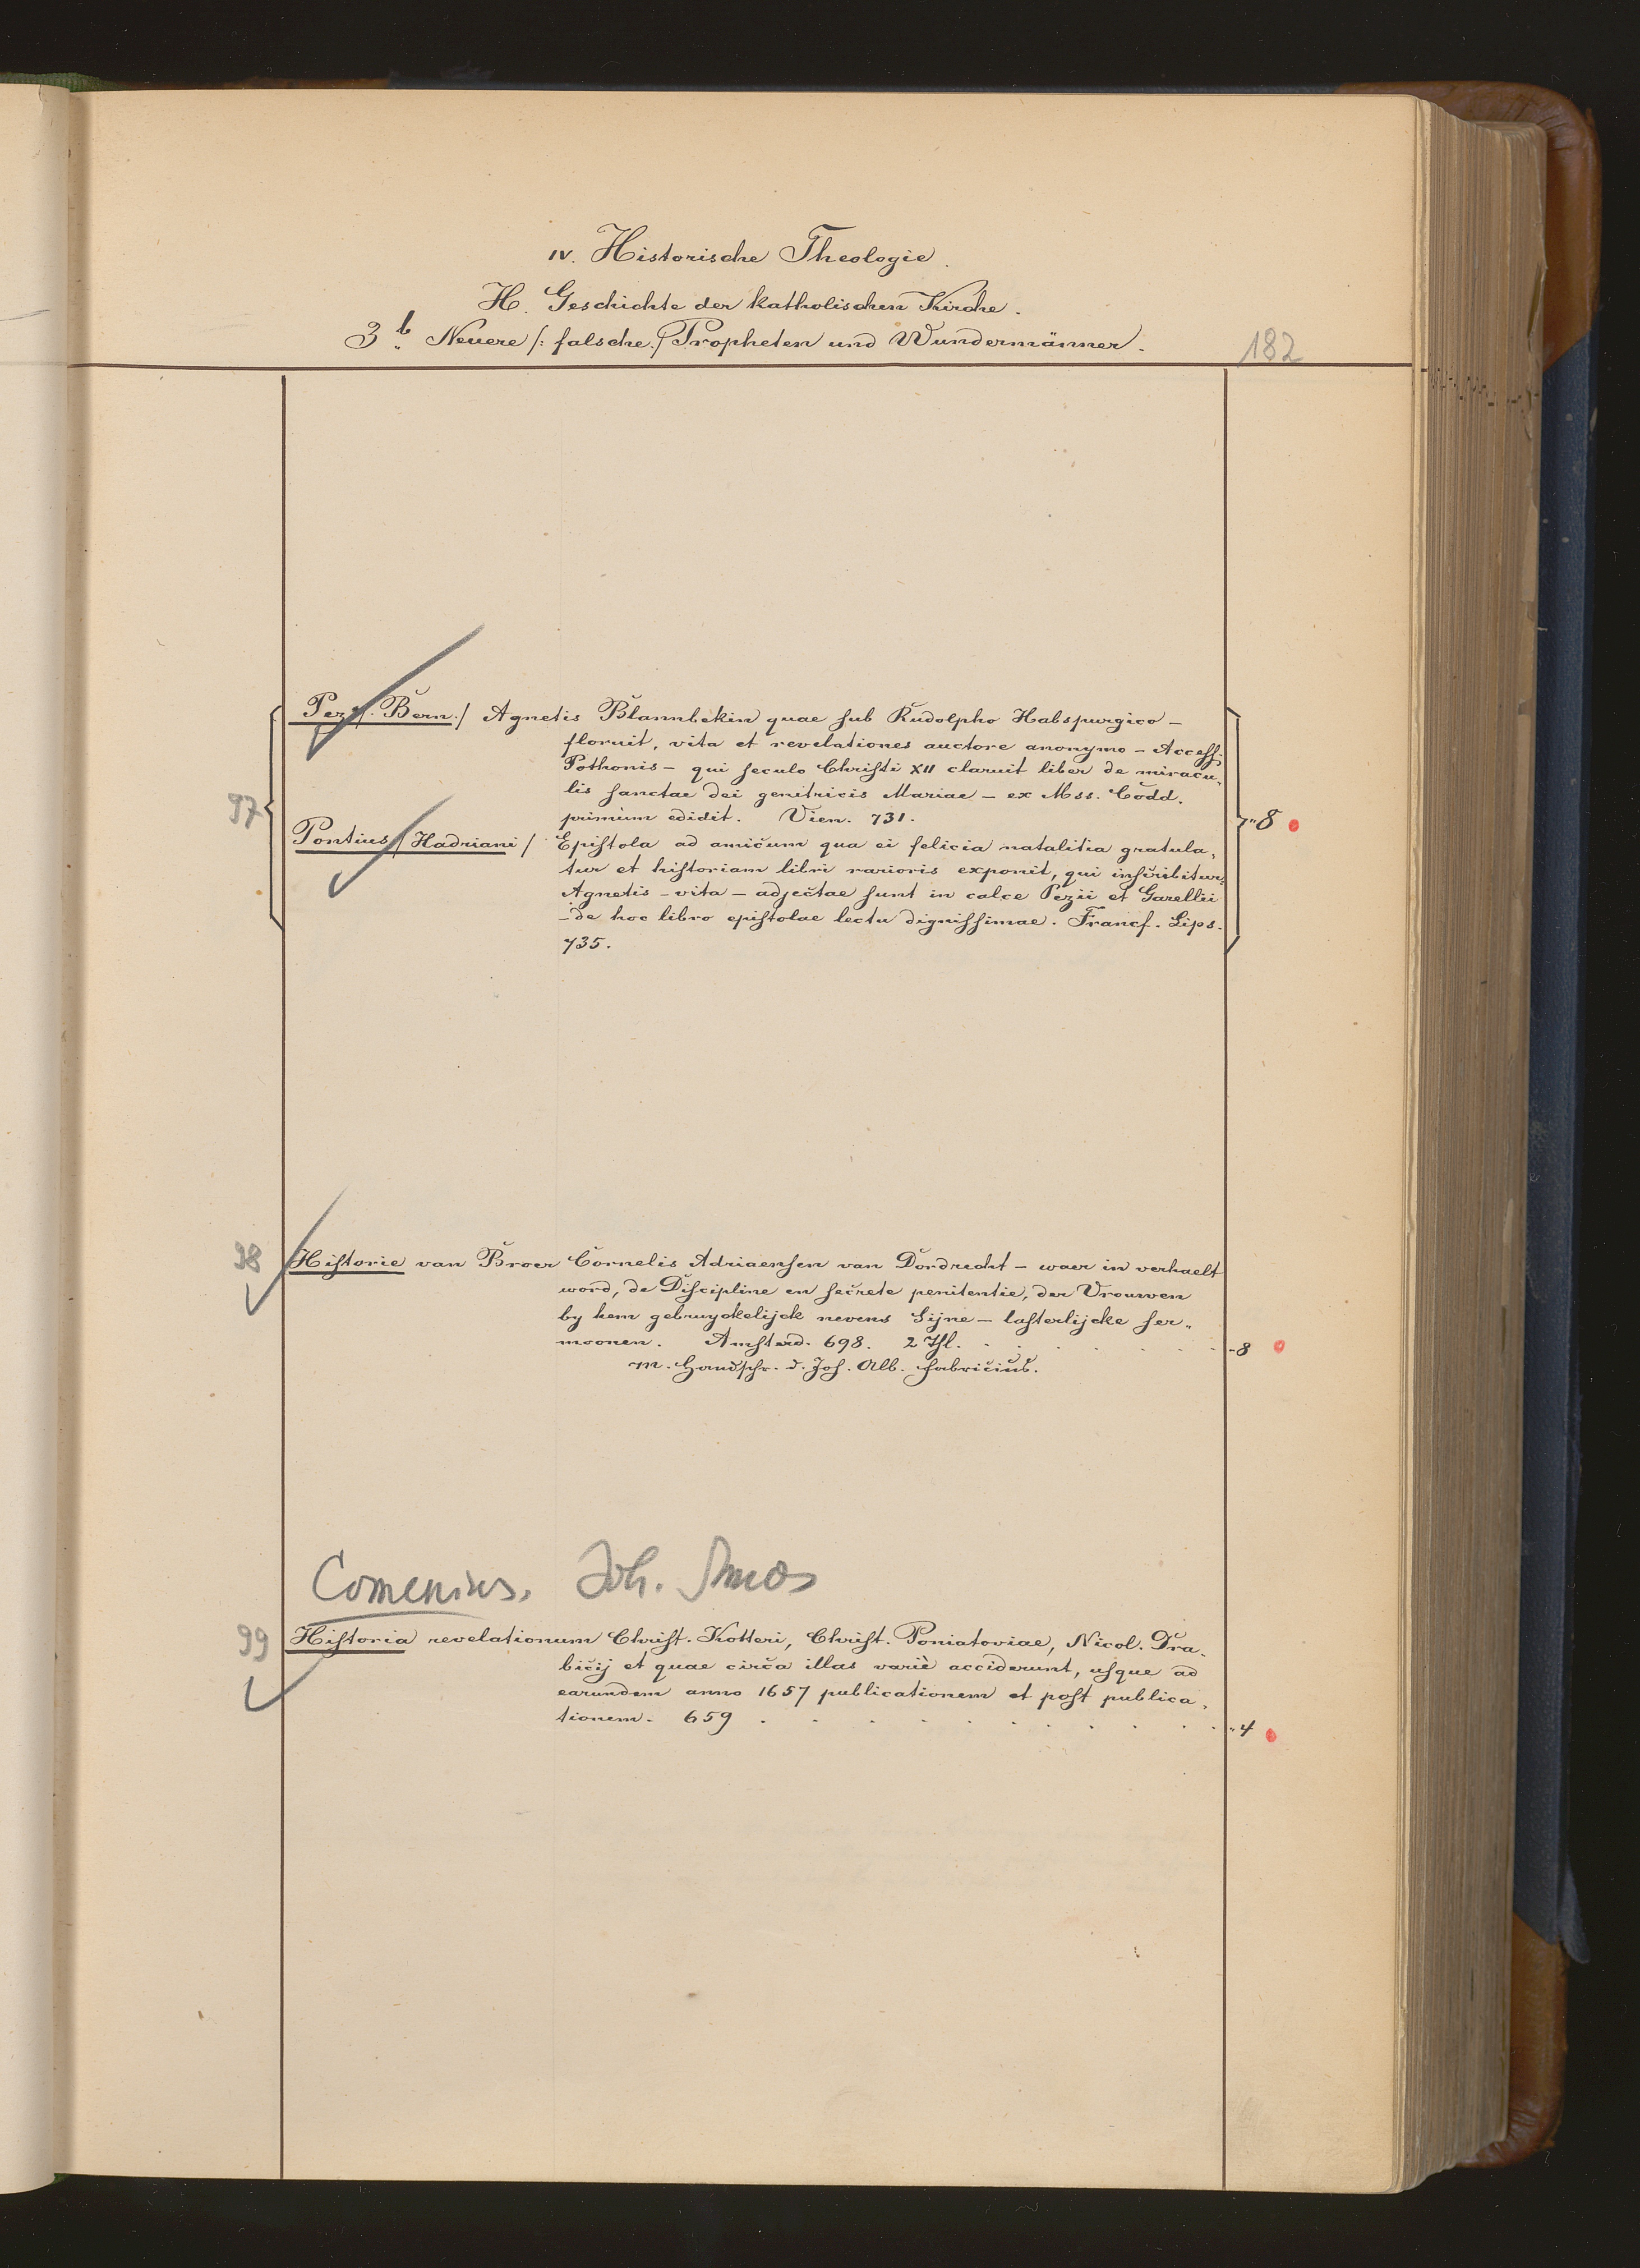 IV. Historische Theologie.
H. Geschichte der katholischen Kirche.
3b. Neuere /: falsche :/ Propheten und Wundermänner.
182
Pez /: Bern :/ Agnetis Blannbekin quae sub Rudolpho Habspurgico —
floruit, vita et revelationes auctore anonymo — Access.
Pothonis — qui seculo Christi XII claruit liber de miracu„
lis sanctae dei genitricis Mariae — ex Mss. Codd.
97
primum edidit. Vien. 731.
„ 8
Pontius /: Hadriani / Epistola ad amicum qua ei felicia natalitia gratula„
tur et historiam libri rarioris exponit, qui inscribitur:
Agnetis — vita — adjectae sunt in calce Pezii et Garellii
— de hoc libro epistolae lectu dignissimae. Francf. Lips.
735.
98
Historie van Broer Cornelis Adriaensen van Dordrecht — waer in verhaelt
word, de Discipline en secrete penitentie, der Vrouwen
by hem gebruyckelijck nevens Sijne — lasterlijcke ser„
moonen. Amsterd. 698. 2 Thl. . . . . . . „ 8
m. Handschr. v. Joh. Alb. Fabricius.
Comenius, Joh. Amos
99
Historia revelationum Christ. Kotteri, Christ. Poniatoviae, Nicol. Dra„
bicij et quae circa illas varie acciderunt, usque ad
earundem anno 1657 publicationem et post publica„
tionem. 659 . . . . . . . . . . „ 4